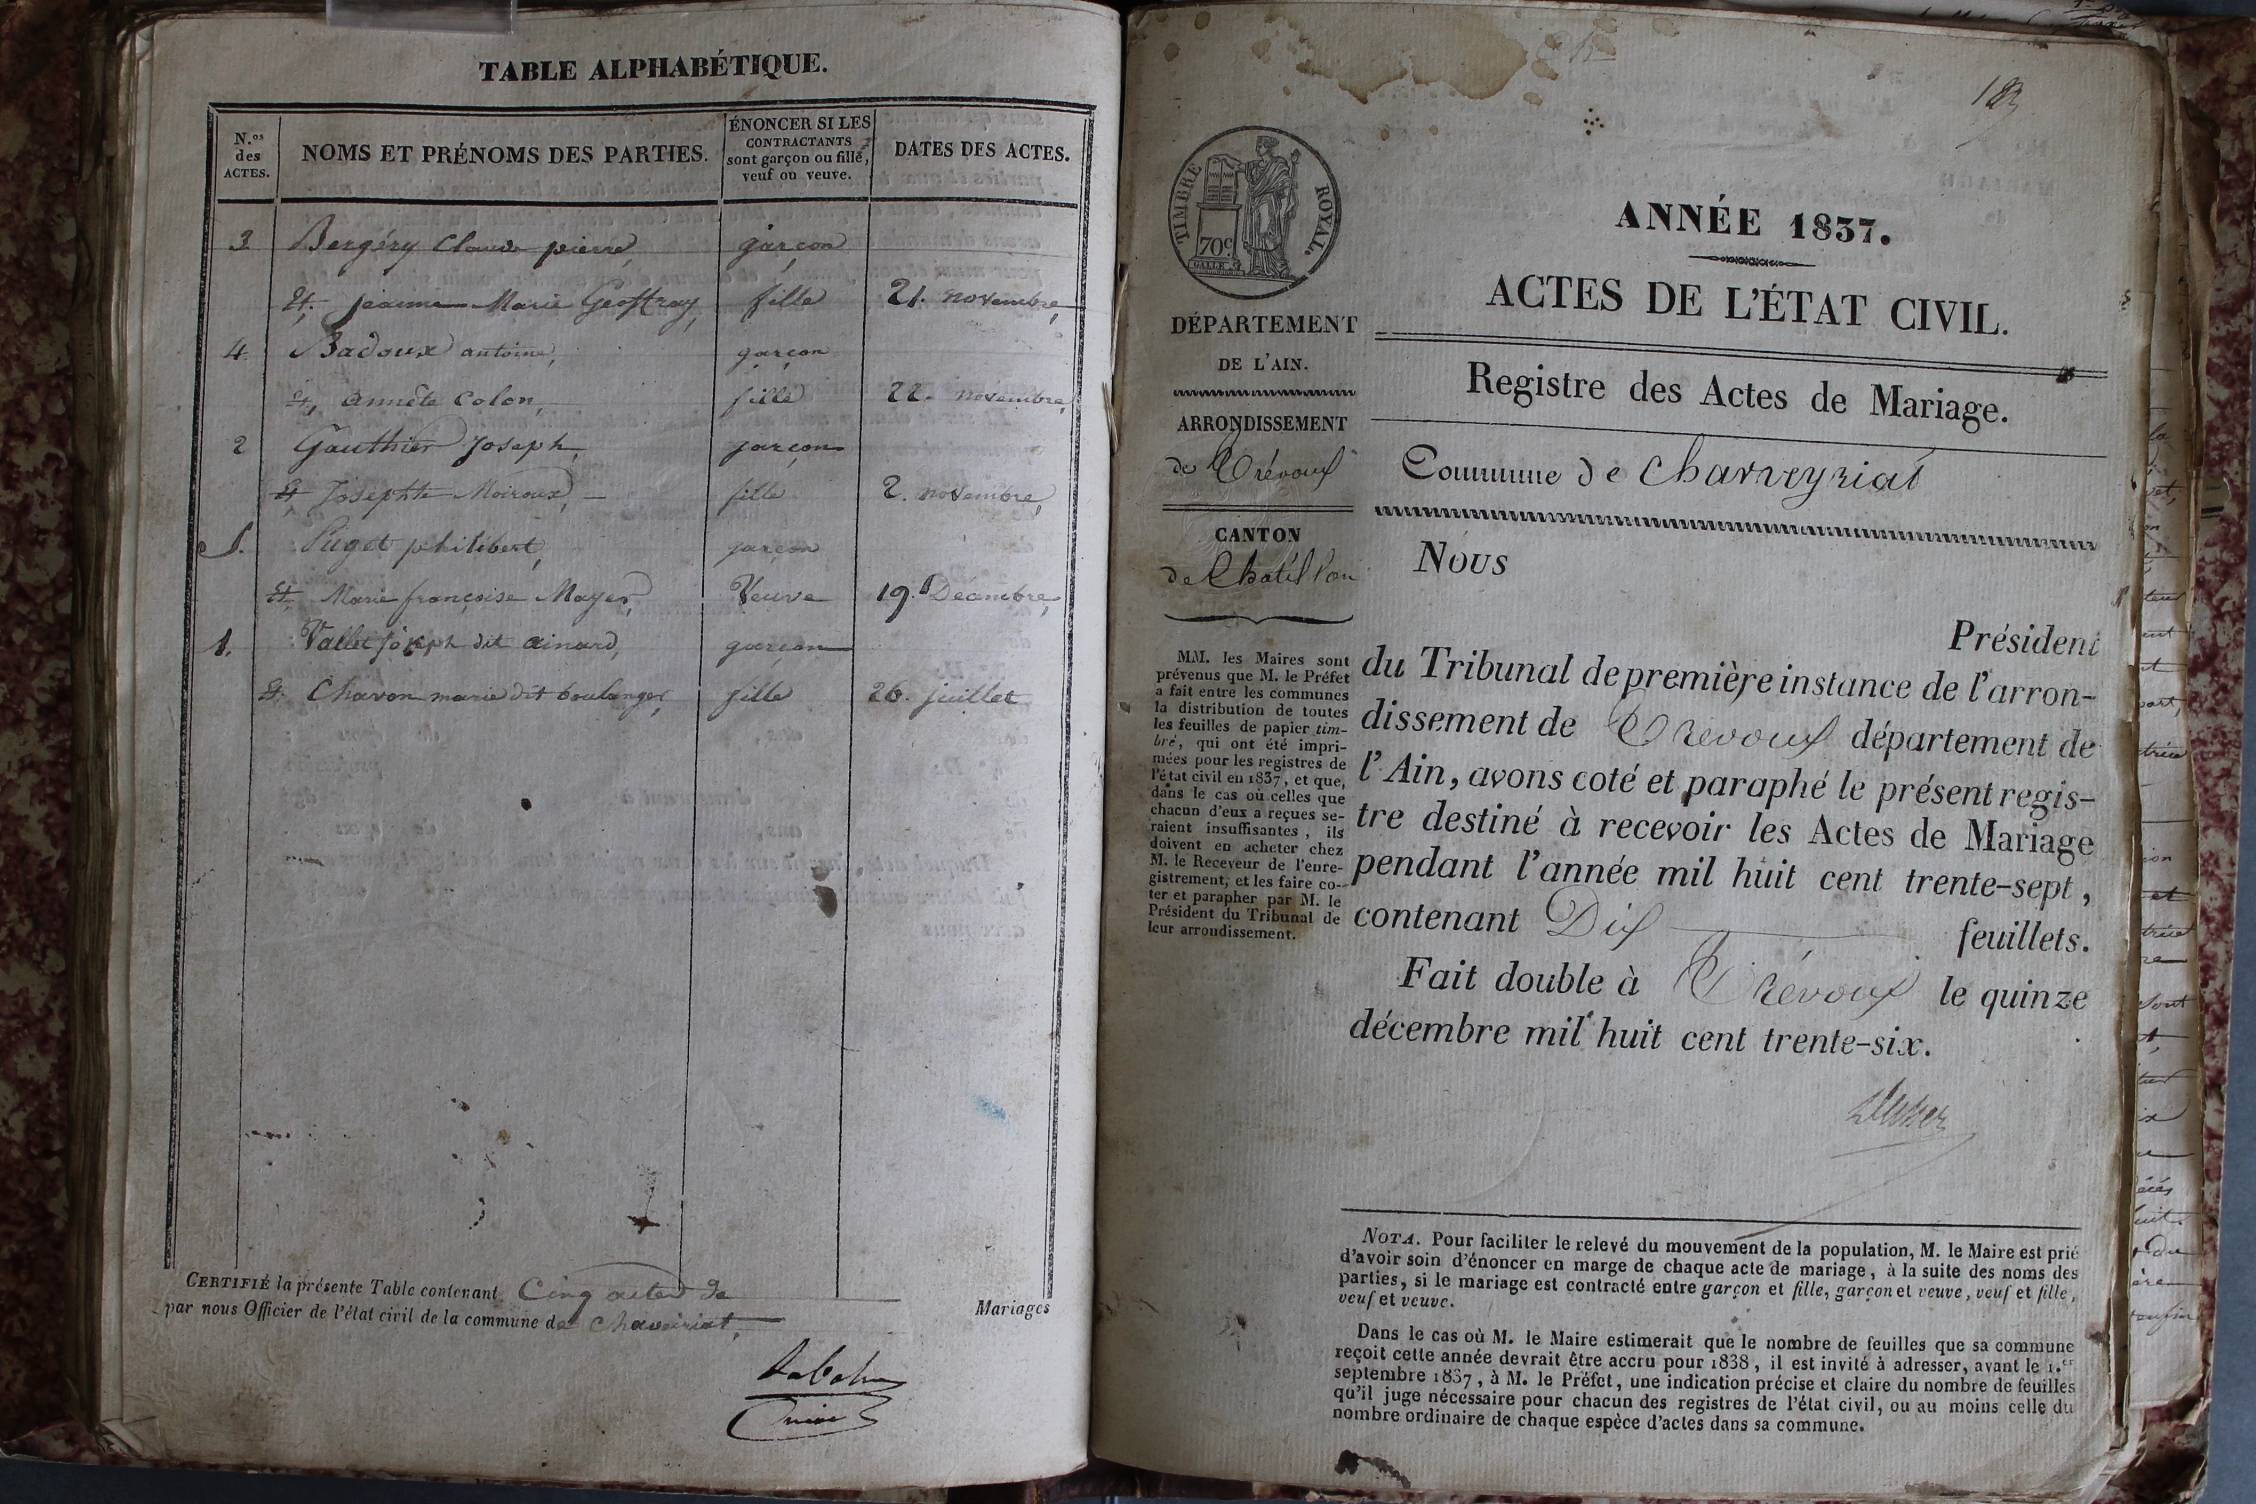 TABLE ALPHABÉTIQUE.
N.os des ACTES.
NOMS ET PRÉNOMS DES PARTIES.
ÉNONCER SI LES CONTRACTANTS sont garçon ou fille, veuf ou veuve.
DATES DES ACTES.
3 Bergéry Claude pierre, garçon
Et, jeanne Marie Geoffray, fille 21. novembre,
4. Badoux antoine, garçon
Et, annête Colon, fille 22. novembre,
2 Gauthier Joseph, garçon
Et Josephte Moiroux, fille 2. novembre,
5. Puget philibert, garçon
Et Marie françoise Mayer, Veuve 19. Décembre,
1. Vallet joseph dit ainard, garçon
Et. Chavon marie dit boulanger, fille 26. juillet
CERTIFIÉ la présente Table contenant Cinq actes de Mariages
par nous Officier de l'état civil de la commune de Chaveiriat,
TIMBRE ROYAL.
70c
GALLE
DÉPARTEMENT
DE L'AIN.
ARRONDISSEMENT
de Trévoux
CANTON
de Chatillon
MM. les Maires sont
prévenus que M. le Préfet
a fait entre les communes
la distribution de toutes
les feuilles de papier tim-
bré, qui ont été impri-
mées pour les registres de
l'état civil en 1837, et que,
dans le cas où celles que
chacun d'eux a reçues se-
raient insuffisantes, ils
doivent en acheter chez
M. le Receveur de l'enre-
gistrement, et les faire co-
ter et parapher par M. le
Président du Tribunal de
leur arrondissement.
ANNÉE 1837.
ACTES DE L'ÉTAT CIVIL.
Registre des Actes de Mariage.
Commune de Charveyriat
Nous
Président
du Tribunal de première instance de l'arron-
dissement de Trevoux département de
l'Ain, avons coté et paraphé le présent regis-
tre destiné à recevoir les Actes de Mariage
pendant l'année mil huit cent trente-sept,
contenant Dix feuillets.
Fait double à Trévoux le quinze
décembre mil huit cent trente-six.
NOTA. Pour faciliter le relevé du mouvement de la population, M. le Maire est prié
d'avoir soin d'énoncer en marge de chaque acte de mariage, à la suite des noms des
parties, si le mariage est contracté entre garçon et fille, garçon et veuve, veuf et fille,
veuf et veuve.
Dans le cas où M. le Maire estimerait que le nombre de feuilles que sa commune
reçoit cette année devrait être accru pour 1838, il est invité à adresser, avant le 1.er
septembre 1837, à M. le Préfet, une indication précise et claire du nombre de feuilles
qu'il juge nécessaire pour chacun des registres de l'état civil, ou au moins celle du
nombre ordinaire de chaque espèce d'actes dans sa commune.